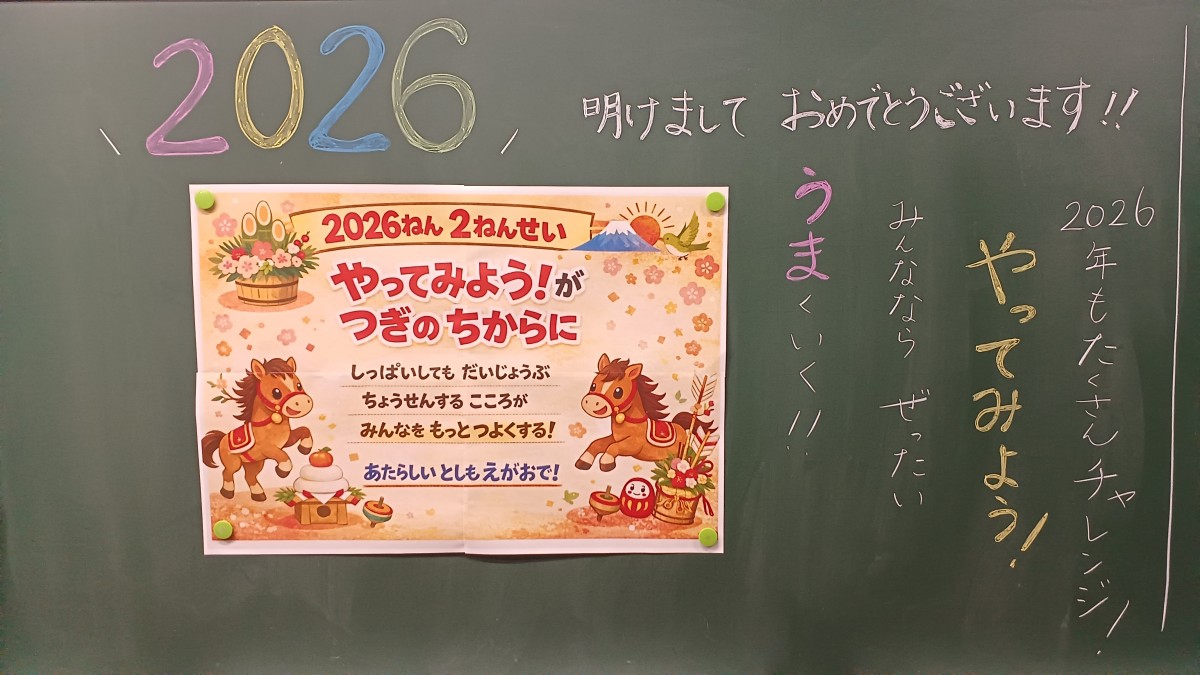 2026
明けまして おめでとうございます!!
2026ねん 2ねんせい
やってみよう!が
つぎの ちからに
しっぱいしても だいじょうぶ
ちょうせんする こころが
みんなを もっと つよくする!
あたらしい としも えがおで!
2026年もたくさんチャレンジ!
やってみよう!
みんななら ぜったい
うまくいく!!